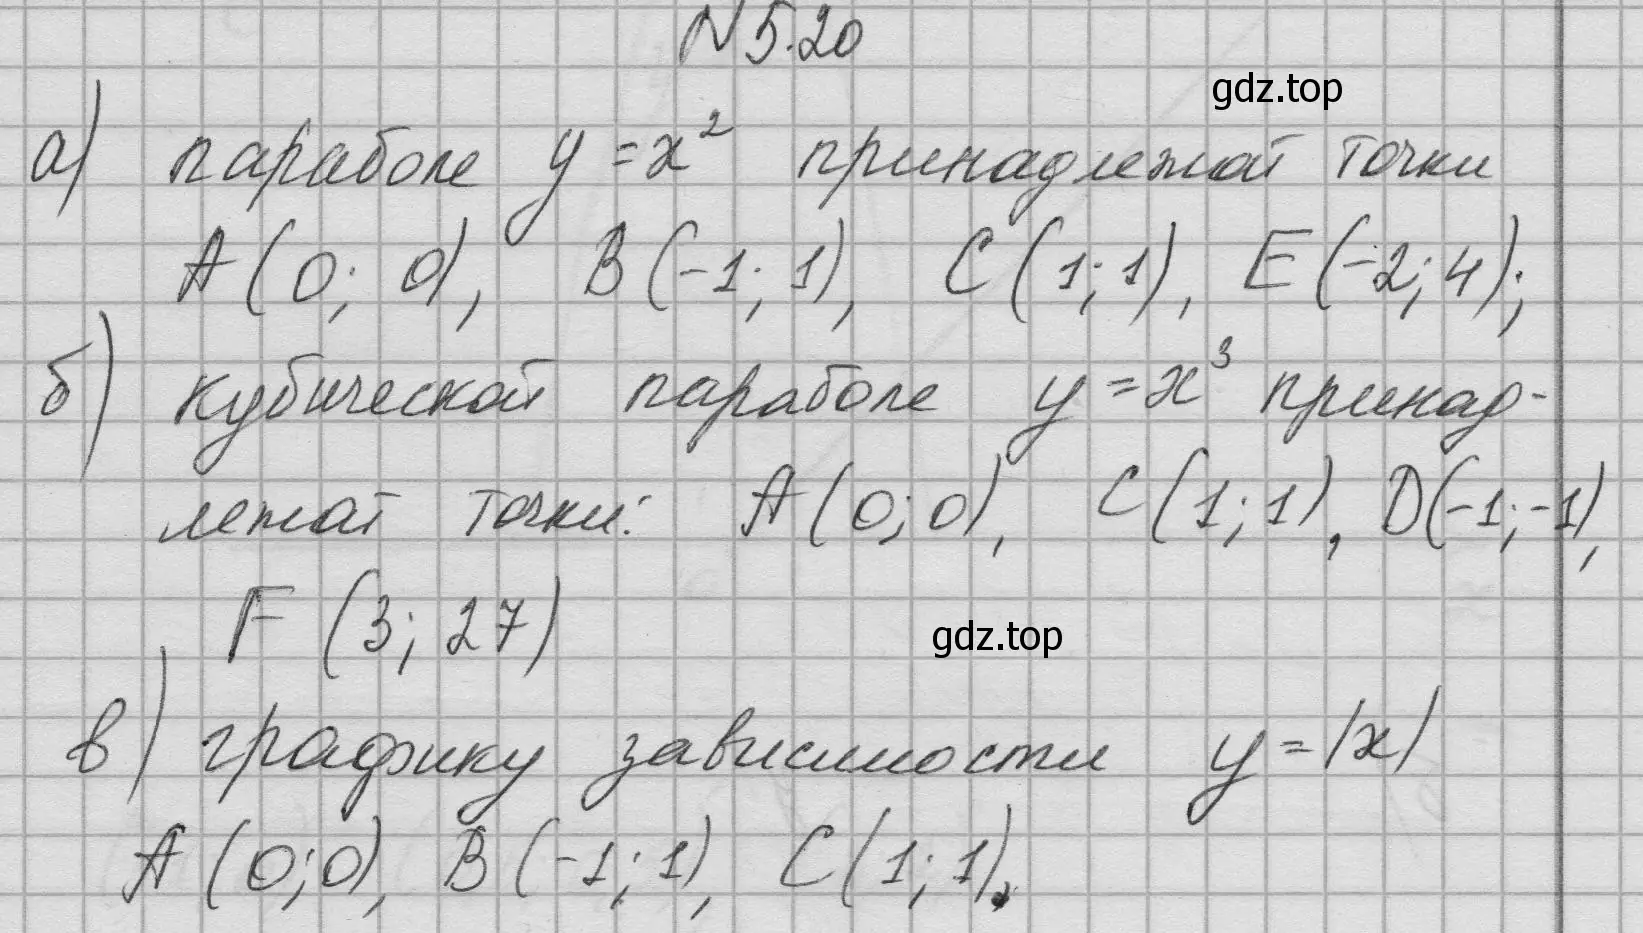 N 5.20
gdz.top
а) параболе y = x² принадлежат точки
A(0; 0), B(-1; 1), C(1; 1), E(-2; 4);
б) кубической параболе y = x³ принад-
лежат точки: A(0; 0), C(1; 1), D(-1; -1),
F(3; 27)
gdz.top
в) графику зависимости y = |x|
A(0; 0), B(-1; 1), C(1; 1).